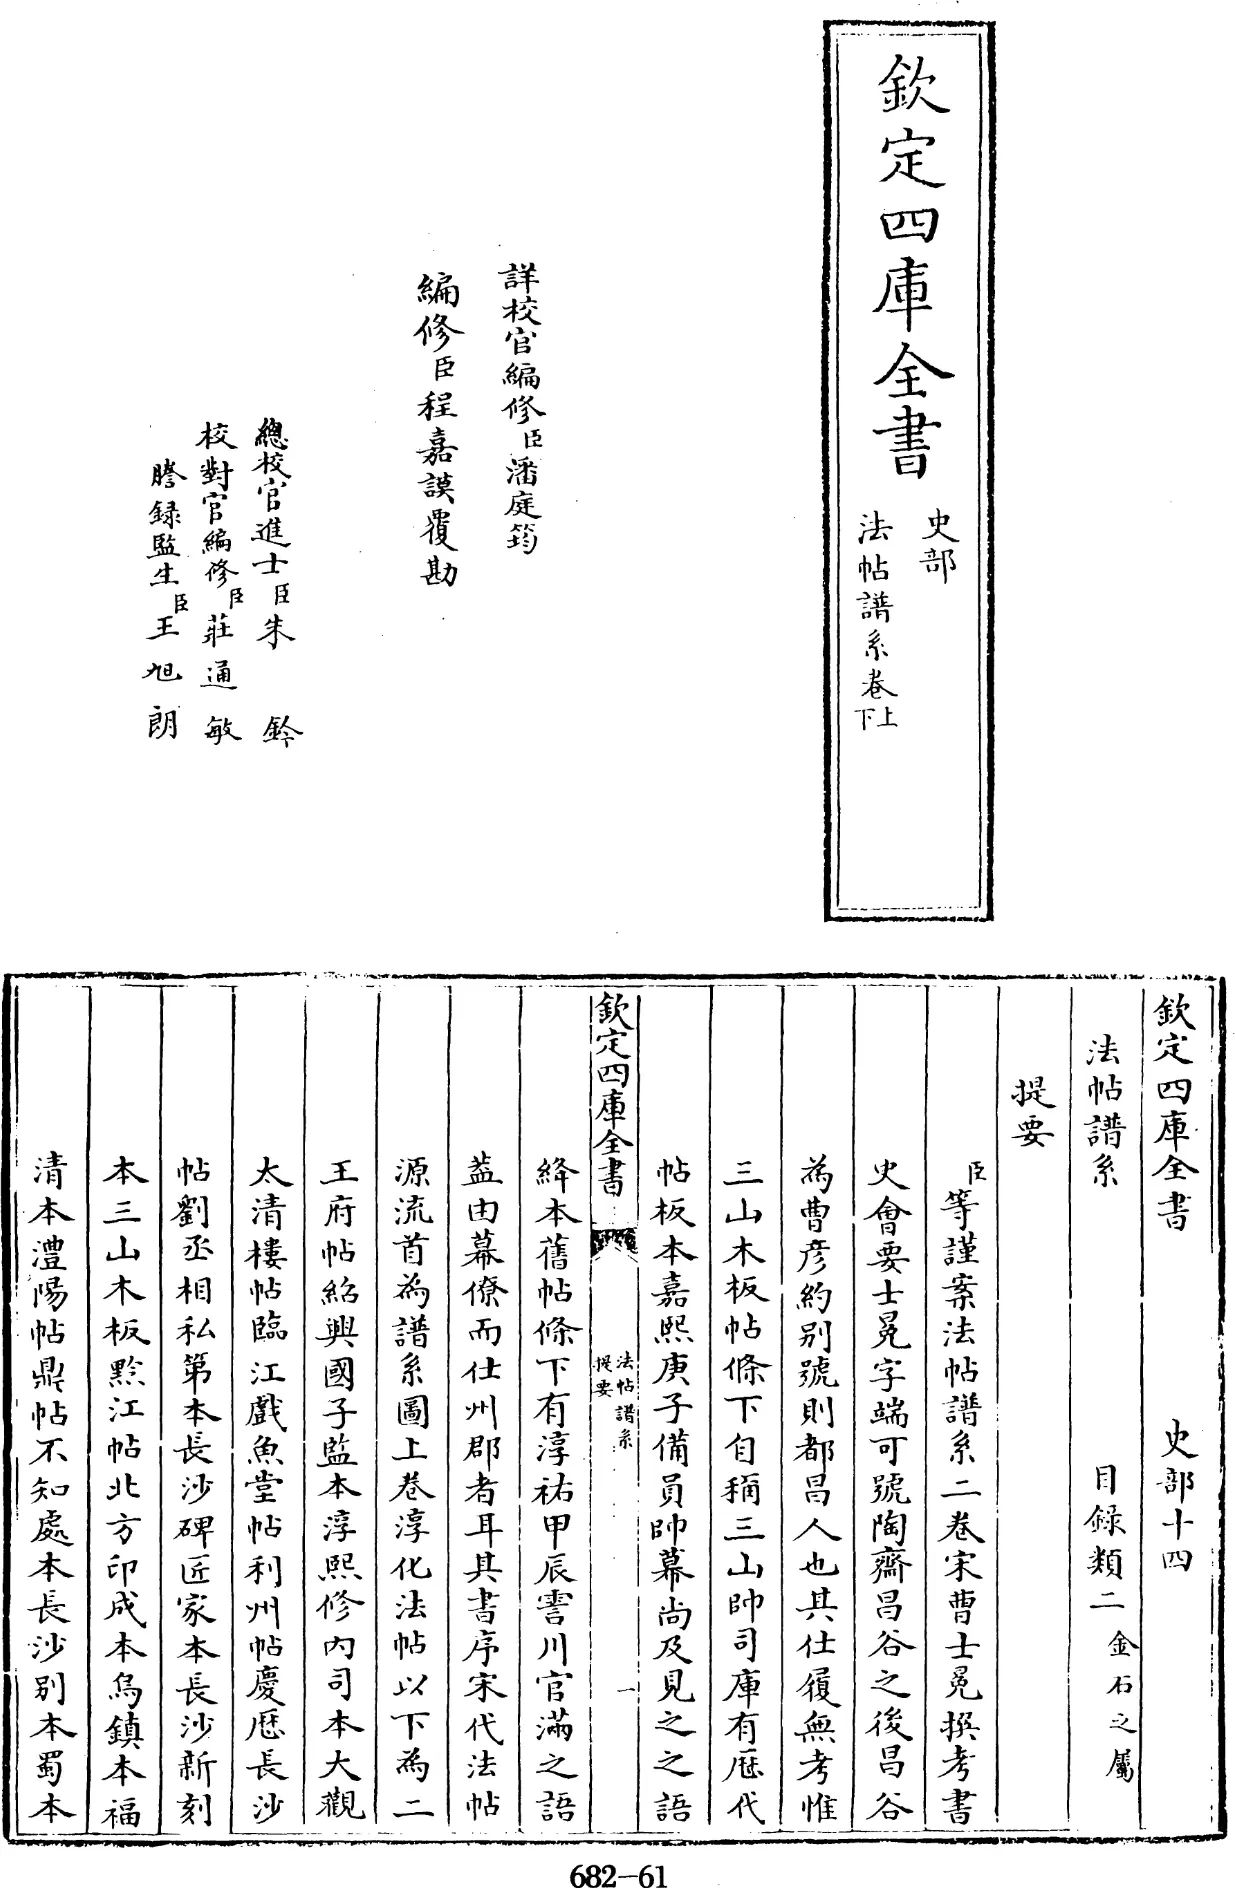 欽定四庫全書
史部
法帖譜系卷上下
詳校官編修臣潘庭筠
編修臣程嘉謨覆勘
總校官進士臣朱鈐
校對官編修臣莊通敏
謄錄監生臣王旭朗
欽定四庫全書 史部十四
法帖譜系 目録類二金石之屬
提要
臣等謹案法帖譜系二卷宋曹士冕撰考書
史會要士冕字端可號陶齋昌谷之後昌谷
為曹彦約别號則都昌人也其仕履無考惟
三山木板帖條下自稱三山帥司庫有歴代
帖板本嘉熙庚子備員帥幕尚及見之之語
欽定四庫全書
法帖譜系
提要
一
絳本舊帖條下有淳祐甲辰霅川官滿之語
葢由幕僚而仕州郡者耳其書序宋代法帖
源流首為譜系圖上卷淳化法帖以下為二
王府帖紹興國子監本淳熙修内司本大觀
太清樓帖臨江戲魚堂帖利州帖慶歴長沙
帖劉丞相私第本長沙碑匠家本長沙新刻
本三山木板黔江帖北方印成本烏鎮本福
清本澧陽帖鼎帖不知處本長沙别本蜀本
682-61